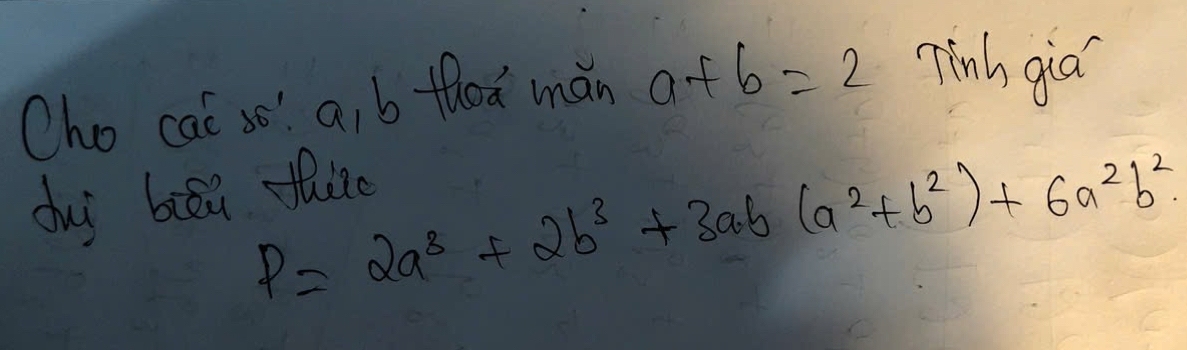 Cho các số a, b thoả mãn a + b = 2 Tính giá
trị biểu thức
P = 2a³ + 2b³ + 3ab (a² + b²) + 6a²b².